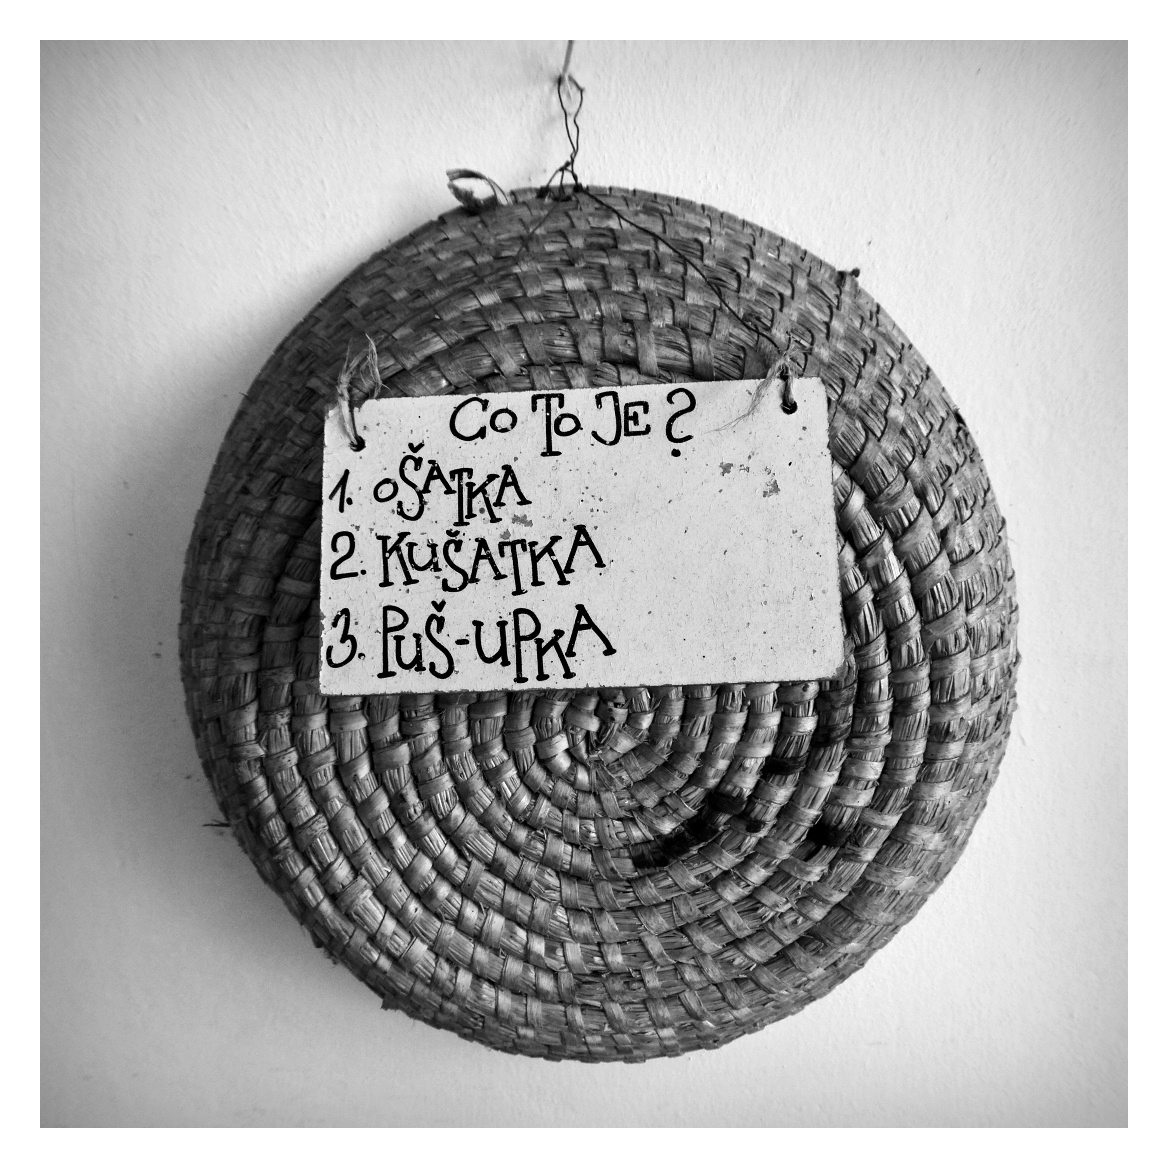 Co To JE?
1. oŠATKA
2. KuŠATKA
3. PuŠ-uPKA